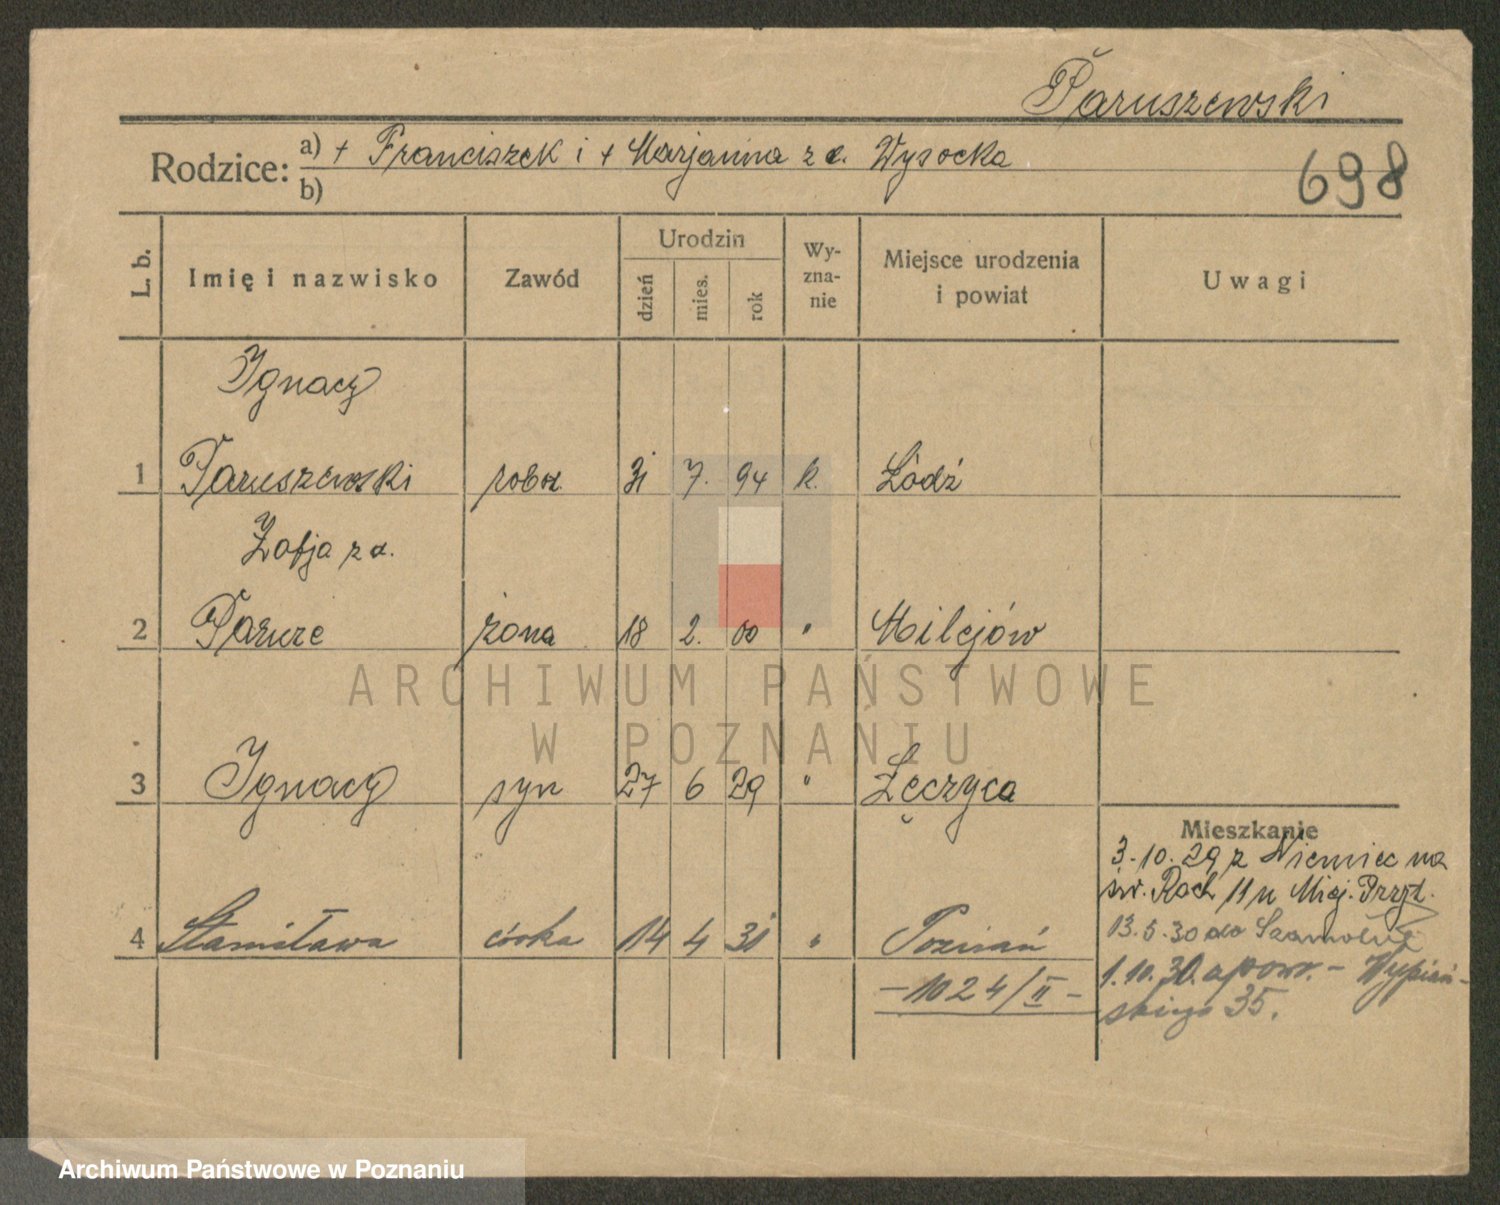 Paruszewski
Rodzice: a) + Franciszek i + Marjanna z d. Wysocka
b)
698
L. b. Imię i nazwisko Zawód Urodzin dzień mies. rok Wy-zna-nie Miejsce urodzenia i powiat Uwagi
Ignacy
1 Paruszewski robot. 31 7. 94 k. Łódź
Zofja z d.
2 żona 18 2. 00 " Milejów
3 Ignacy syn 27 6 29 " Łęczyca
Mieszkanie
3.10.29 z Niemiec na
św. Roch 11 u Miej. Przyt.
4 Stanisława córka 14 4 31 " Poznań
13.5.30 do
- 1024/II -
1.10.30. spow. - Wyspiań-
skiego 35.
ARCHIWUM PAŃSTWOWE
W POZNANIU
Archiwum Państwowe w Poznaniu